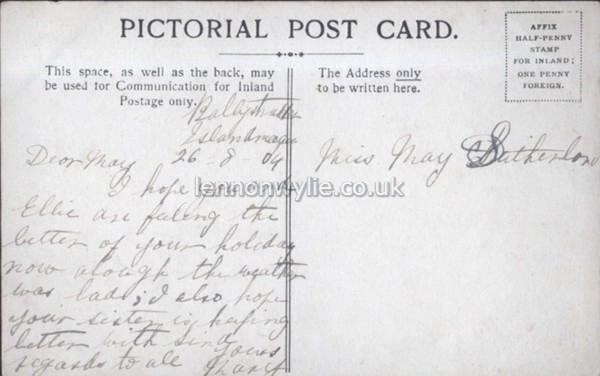 PICTORIAL POST CARD.
AFFIX
HALF-PENNY
STAMP
FOR INLAND;
ONE PENNY
FOREIGN.
This space, as well as the back, may
be used for Communication for Inland
Postage only.
The Address only
to be written here.
Islandmagee
26-8-04
Dear May
I hope you and
Ellie are faling the
better of your holiday
now alough the weather
was bad; I also hope
your sister is
better with kind
regards to all Yours
Miss May Sutherland
lennonwylie.co.uk